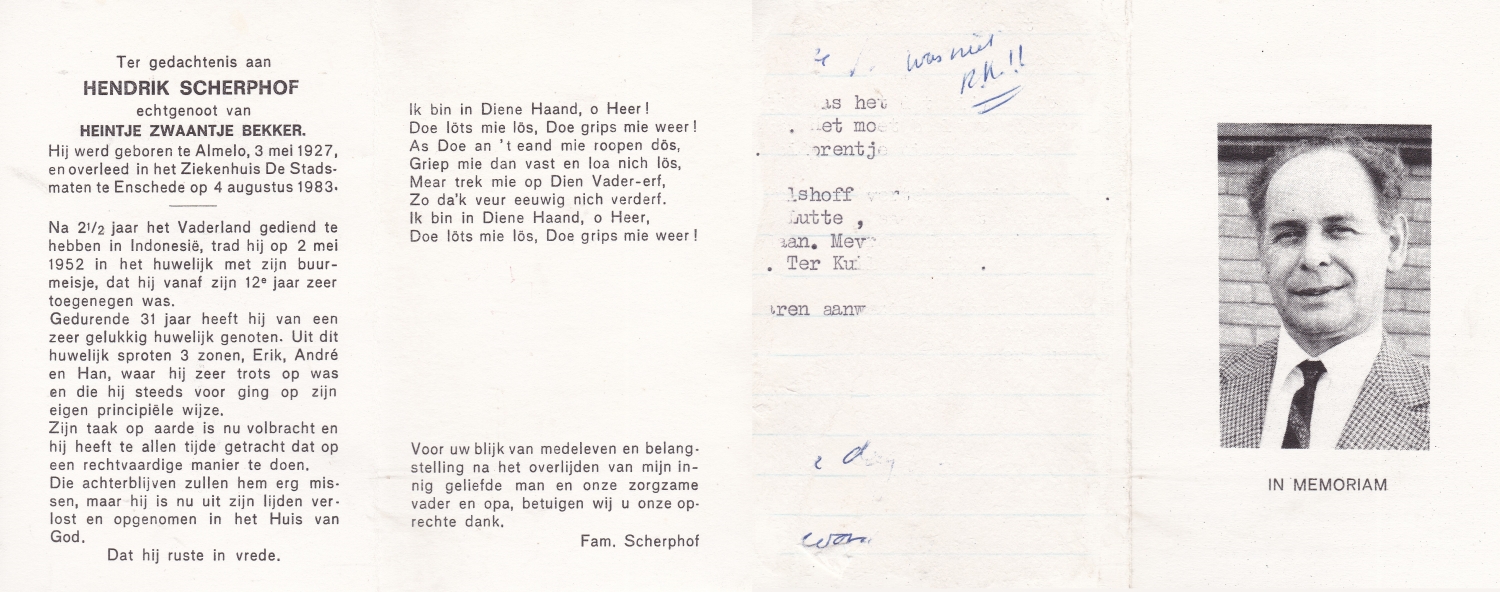 Ter gedachtenis aan
HENDRIK SCHERPHOF
echtgenoot van
HEINTJE ZWAANTJE BEKKER.
Hij werd geboren te Almelo, 3 mei 1927,
en overleed in het Ziekenhuis De Stads-
maten te Enschede op 4 augustus 1983.
Na 2½ jaar het Vaderland gediend te
hebben in Indonesië, trad hij op 2 mei
1952 in het huwelijk met zijn buur-
meisje, dat hij vanaf zijn 12e jaar zeer
toegenegen was.
Gedurende 31 jaar heeft hij van een
zeer gelukkig huwelijk genoten. Uit dit
huwelijk sproten 3 zonen, Erik, André
en Han, waar hij zeer trots op was
en die hij steeds voor ging op zijn
eigen principiële wijze.
Zijn taak op aarde is nu volbracht en
hij heeft te allen tijde getracht dat op
een rechtvaardige manier te doen.
Die achterblijven zullen hem erg mis-
sen, maar hij is nu uit zijn lijden ver-
lost en opgenomen in het Huis van
God.
Dat hij ruste in vrede.
Ik bin in Diene Haand, o Heer!
Doe löts mie lös, Doe grips mie weer!
As Doe an 't eand mie roopen dös,
Griep mie dan vast en loa nich lös,
Mear trek mie op Dien Vader-erf,
Zo da'k veur eeuwig nich verderf.
Ik bin in Diene Haand, o Heer,
Doe löts mie lös, Doe grips mie weer!
Voor uw blijk van medeleven en belang-
stelling na het overlijden van mijn in-
nig geliefde man en onze zorgzame
vader en opa, betuigen wij u onze op-
rechte dank.
Fam. Scherphof
was niet
R.K.!!
as het
et mo
orentje
lshoff
Lutte ,
aan. Mev
. Ter Ku
ren aanw
IN MEMORIAM